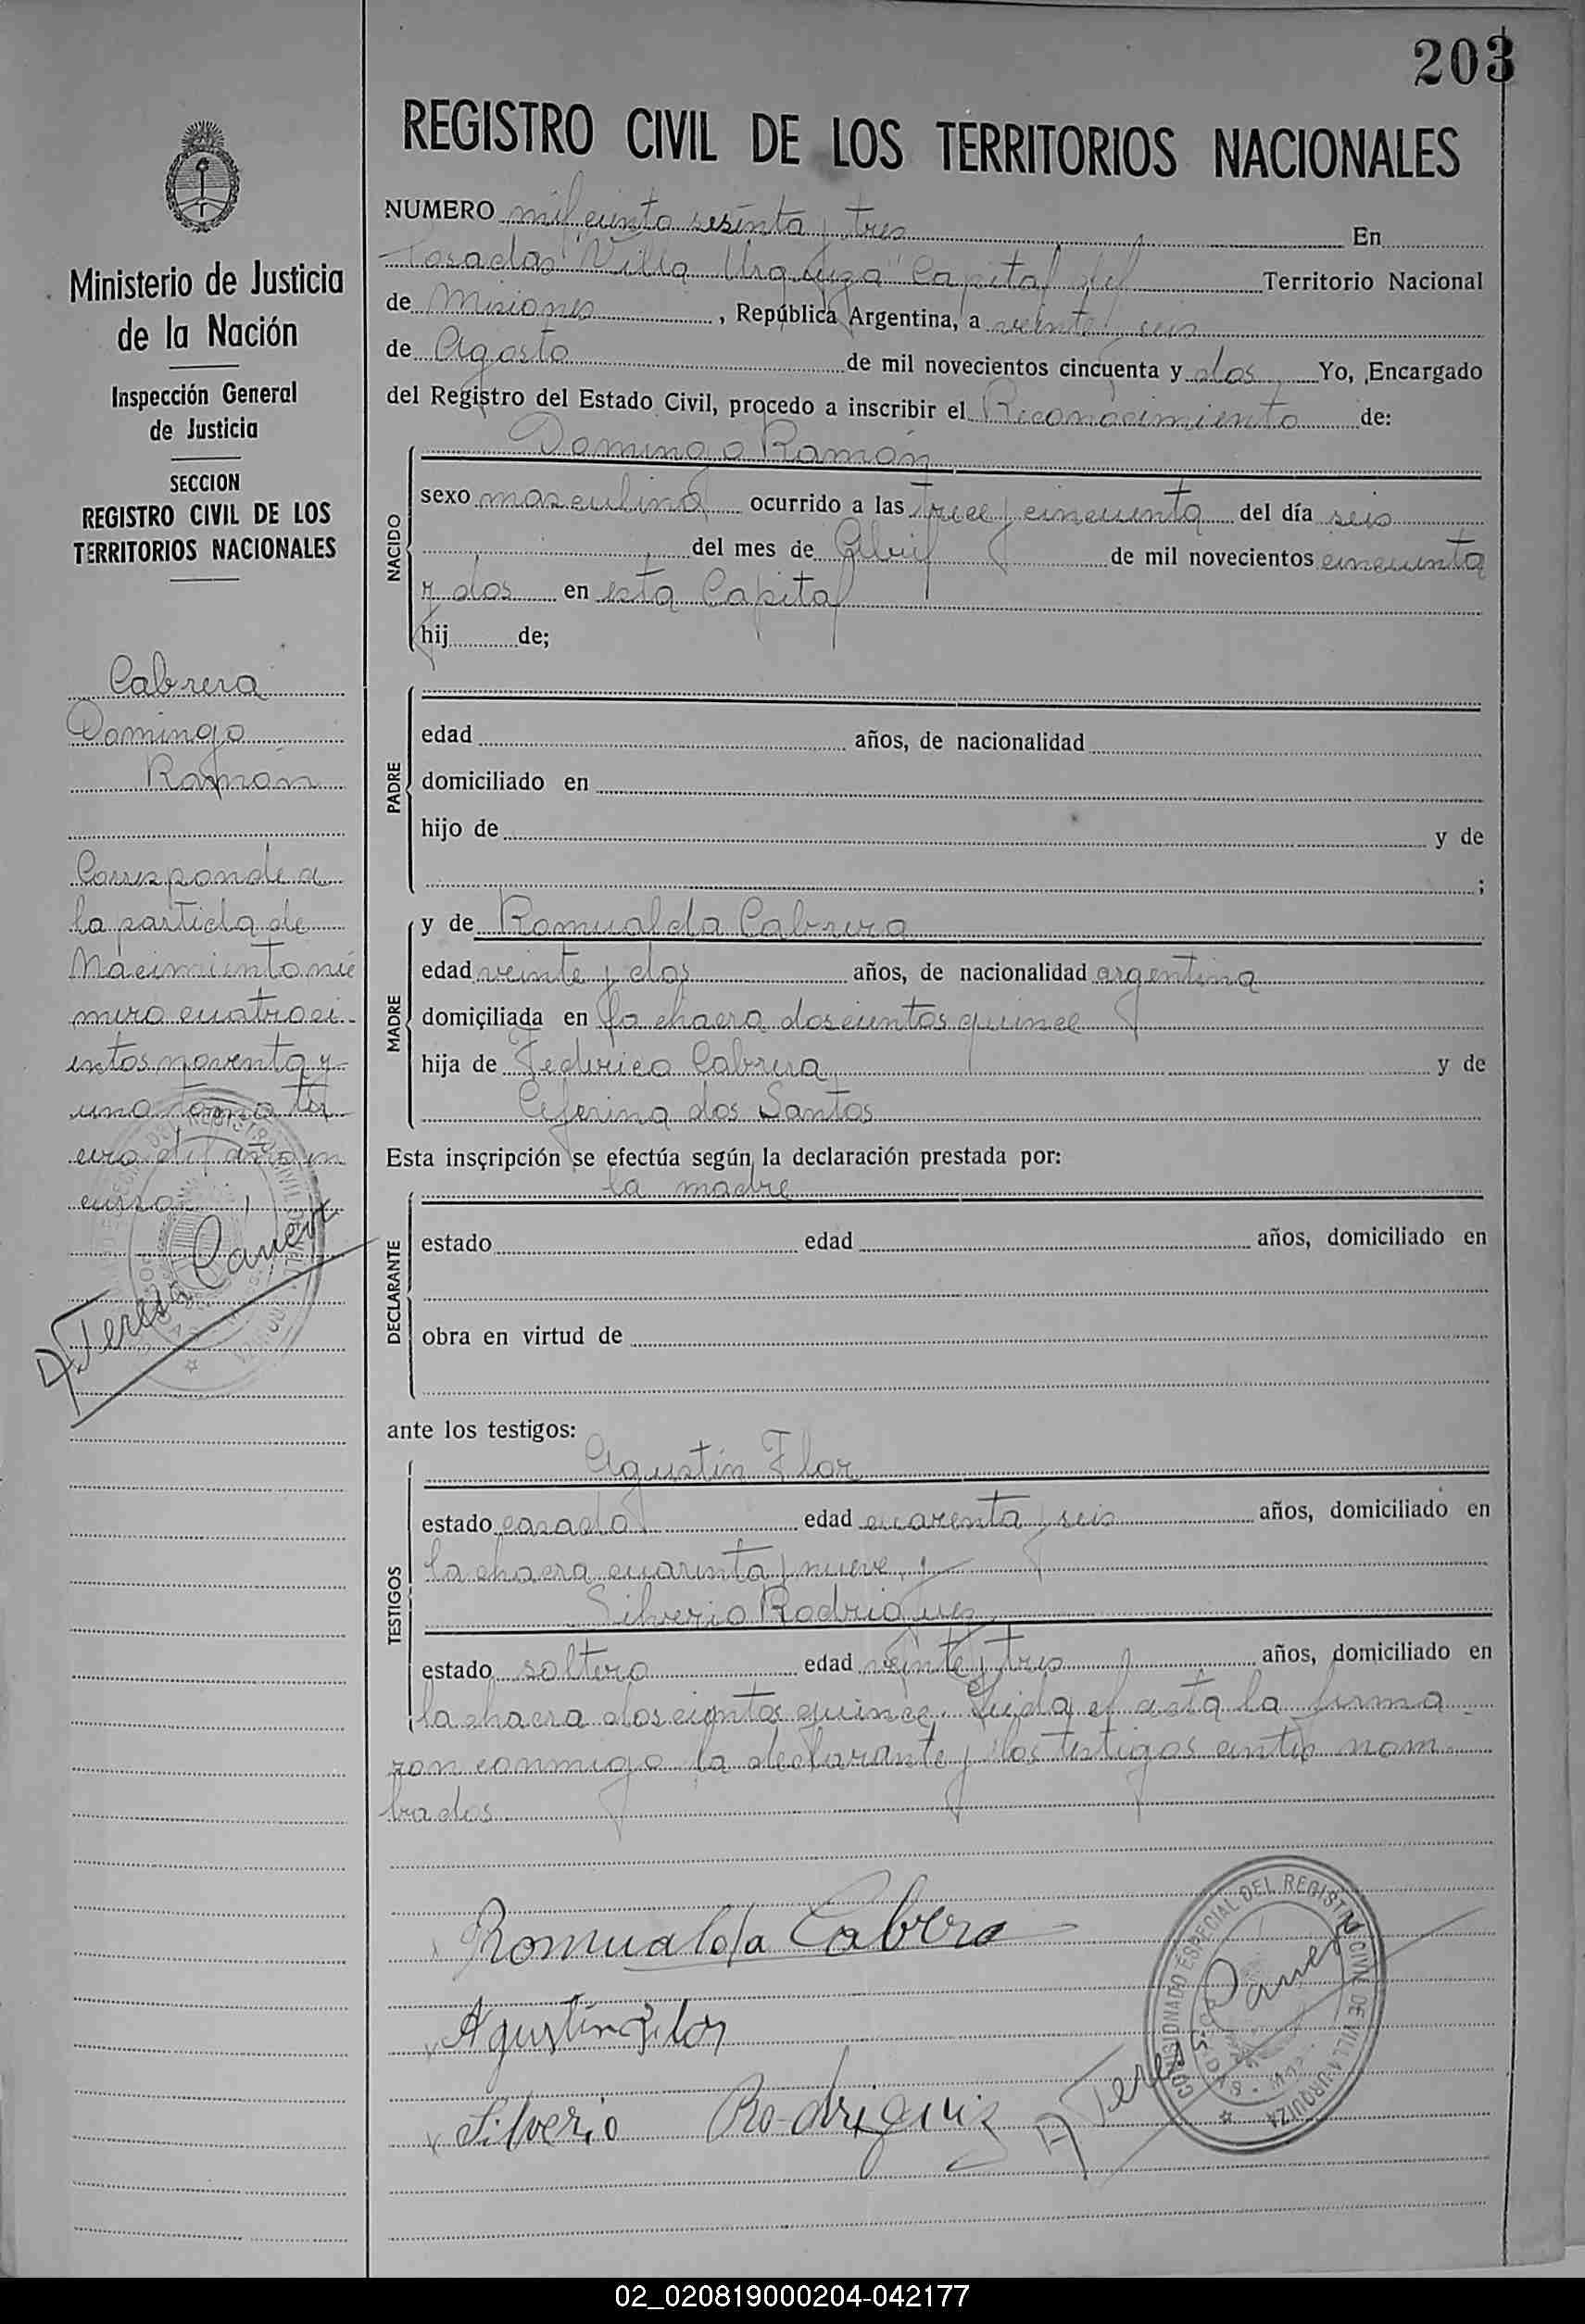 203
REGISTRO CIVIL DE LOS TERRITORIOS NACIONALES
Ministerio de Justicia
de la Nación
Inspección General
de Justicia
SECCION
REGISTRO CIVIL DE LOS
TERRITORIOS NACIONALES
Cabrera
Domingo
Ramón
Corresponde a
la partida de
Nacimiento nú
mero cuatroci-
entos noventa y
uno tomo ter
cero del año en
curso.
A Teresa
NUMERO mil ciento sesenta y tres En
Posadas "Villa Urquiza" Capital del Territorio Nacional
de Misiones, República Argentina, a veinte y seis
de Agosto de mil novecientos cincuenta y dos, Yo, Encargado
del Registro del Estado Civil, procedo a inscribir el Reconocimiento de:
NACIDO
Domingo Ramón
sexo masculino ocurrido a las trece y cincuenta del día seis
del mes de Abril de mil novecientos cincuenta
y dos en esta Capital
hij de;
PADRE
edad años, de nacionalidad
domiciliado en
hijo de y de
;
MADRE
y de Romualda Cabrera
edad veinte y dos años, de nacionalidad argentina
domiciliada en la chacra doscientos quince
hija de Federico Cabrera y de
Ceferina dos Santos
Esta inscripción se efectúa según la declaración prestada por:
DECLARANTE
la madre
estado edad años, domiciliado en
obra en virtud de
ante los testigos:
TESTIGOS
Agustín Flor
estado casado edad cuarenta y seis años, domiciliado en
la chacra cuarenta y nueve y
Silverio Rodrigues
estado soltero edad veinte y tres años, domiciliado en
la chacra doscientos quince. Leida el acta la firma
ron conmigo la declarante y los testigos antes nom
brados
Romualda Cabrera
Agustin Flor
Silverio Rodriguis
A Teresa
COMISIONADO ESPECIAL DEL REGISTRO CIVIL DE VILLA URQUIZA
02_020819000204-042177